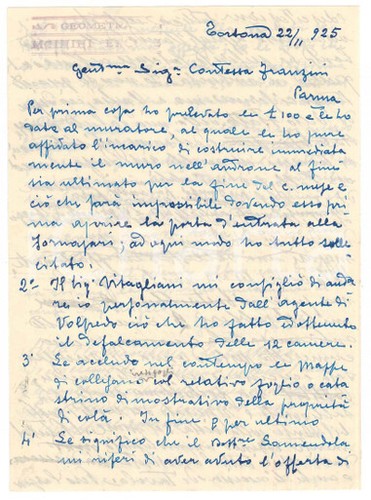 Tortona 22/11 925
Gent.ma Sig.a Contessa Franzini
Parma
Per prima cosa ho prelevato le £ 100 e le ho
date al muratore, al quale le ho pure
affidato l'incarico di costruire immediata
mente il muro nell'androne al fine
sia ultimato per la fine del c. mese e
ciò che sarà impossibile dovendo esso pri
ma aprire la porta d'entrata alla
Fornasari; ad ogni modo ho tutto solle
citato.
2° Il Sig. Vitagliani mi consigliò di anda
re io personalmente dall'agente di
Volpedo ciò che ho fatto ed ottenuto
il defalcamento delle 12 camere.
3° Le accludo nel contempo le Mappe
di col relativo foglio o cata
strino dimostrativo della proprietà
di colà. In fine per ultimo
4° Le significo che il Dott.re
mi riferì di aver avuto l'offerta di